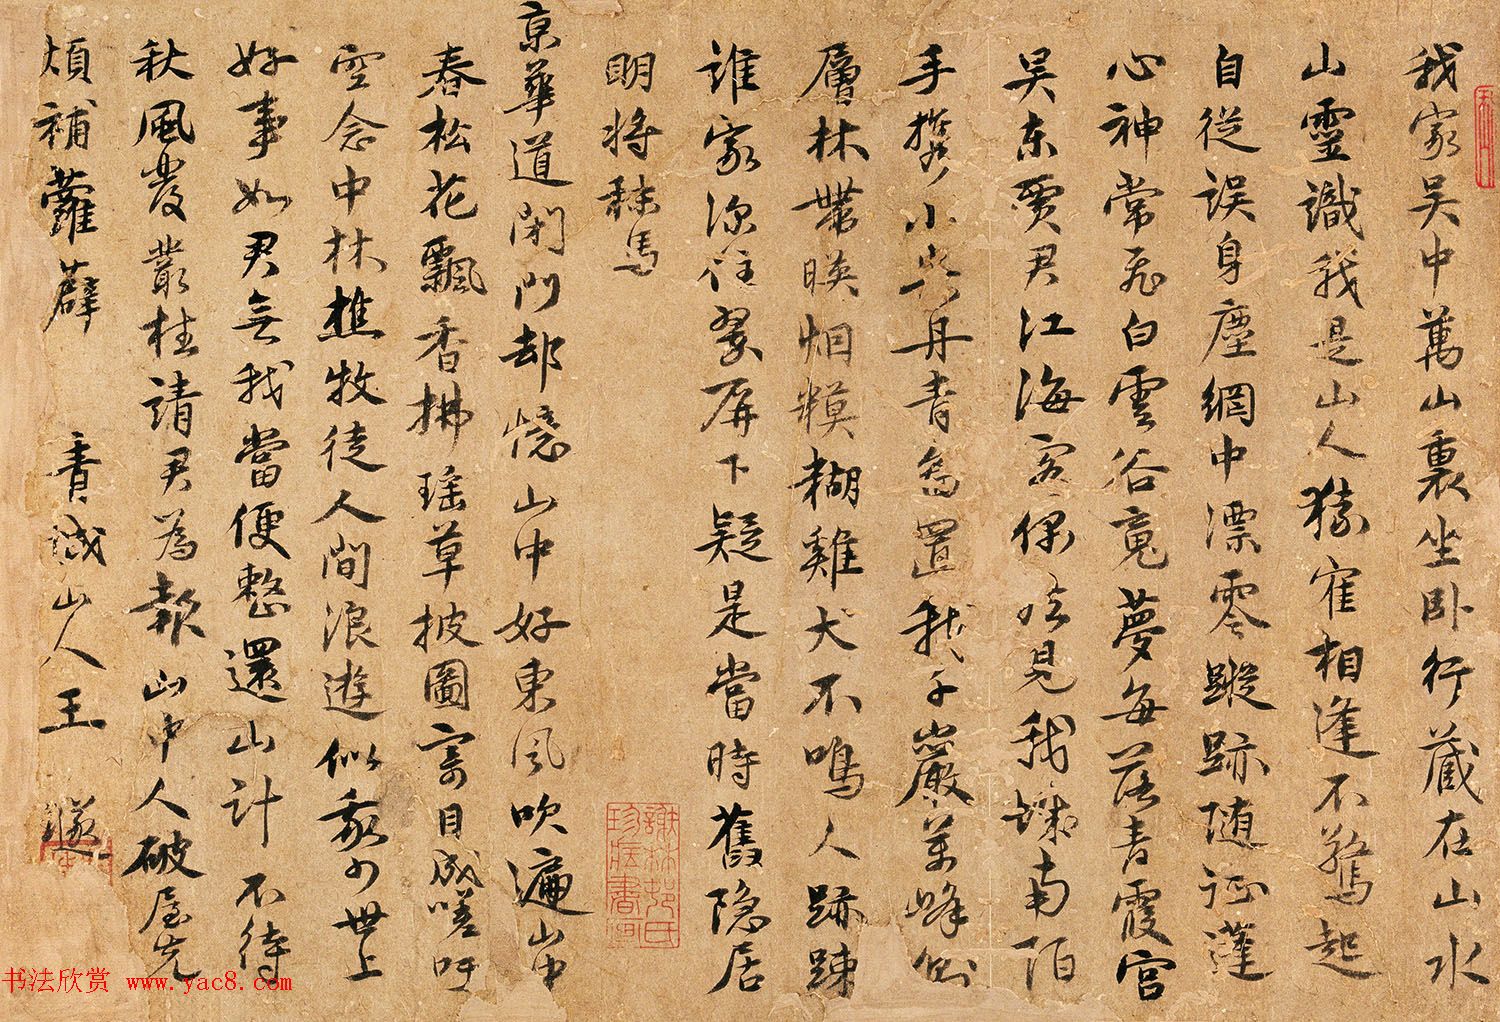 我家吳中萬山裏坐卧行藏在山水
山靈識我是山人猿隺相逢不驚起
自從誤身塵網中漂零蹤跡随征蓬
心神常飛白雲谷竟夢每落青霞宮
吴東賈君江海客偶然見我城南陌
手攜小卷丹青舊置我千巖萬峰側
層林帶暎烟糢糊雞犬不鳴人跡踈
誰家深住翠屏下疑是當時舊隐居
明將秣馬
京華道閉門却憶山中好東风吹遍山中
春松花飄香拂瑶草披圖寄目成嗟吁
空念中林樵牧徒人間浪遊似我少世上
好事如君無我當便整還山計不待
秋風發叢桂請君為報山中人破屋先
煩補蘿薜 青城山人王 璲
謝林邨氏
珍臧書画
书法欣赏 www.yac8.com